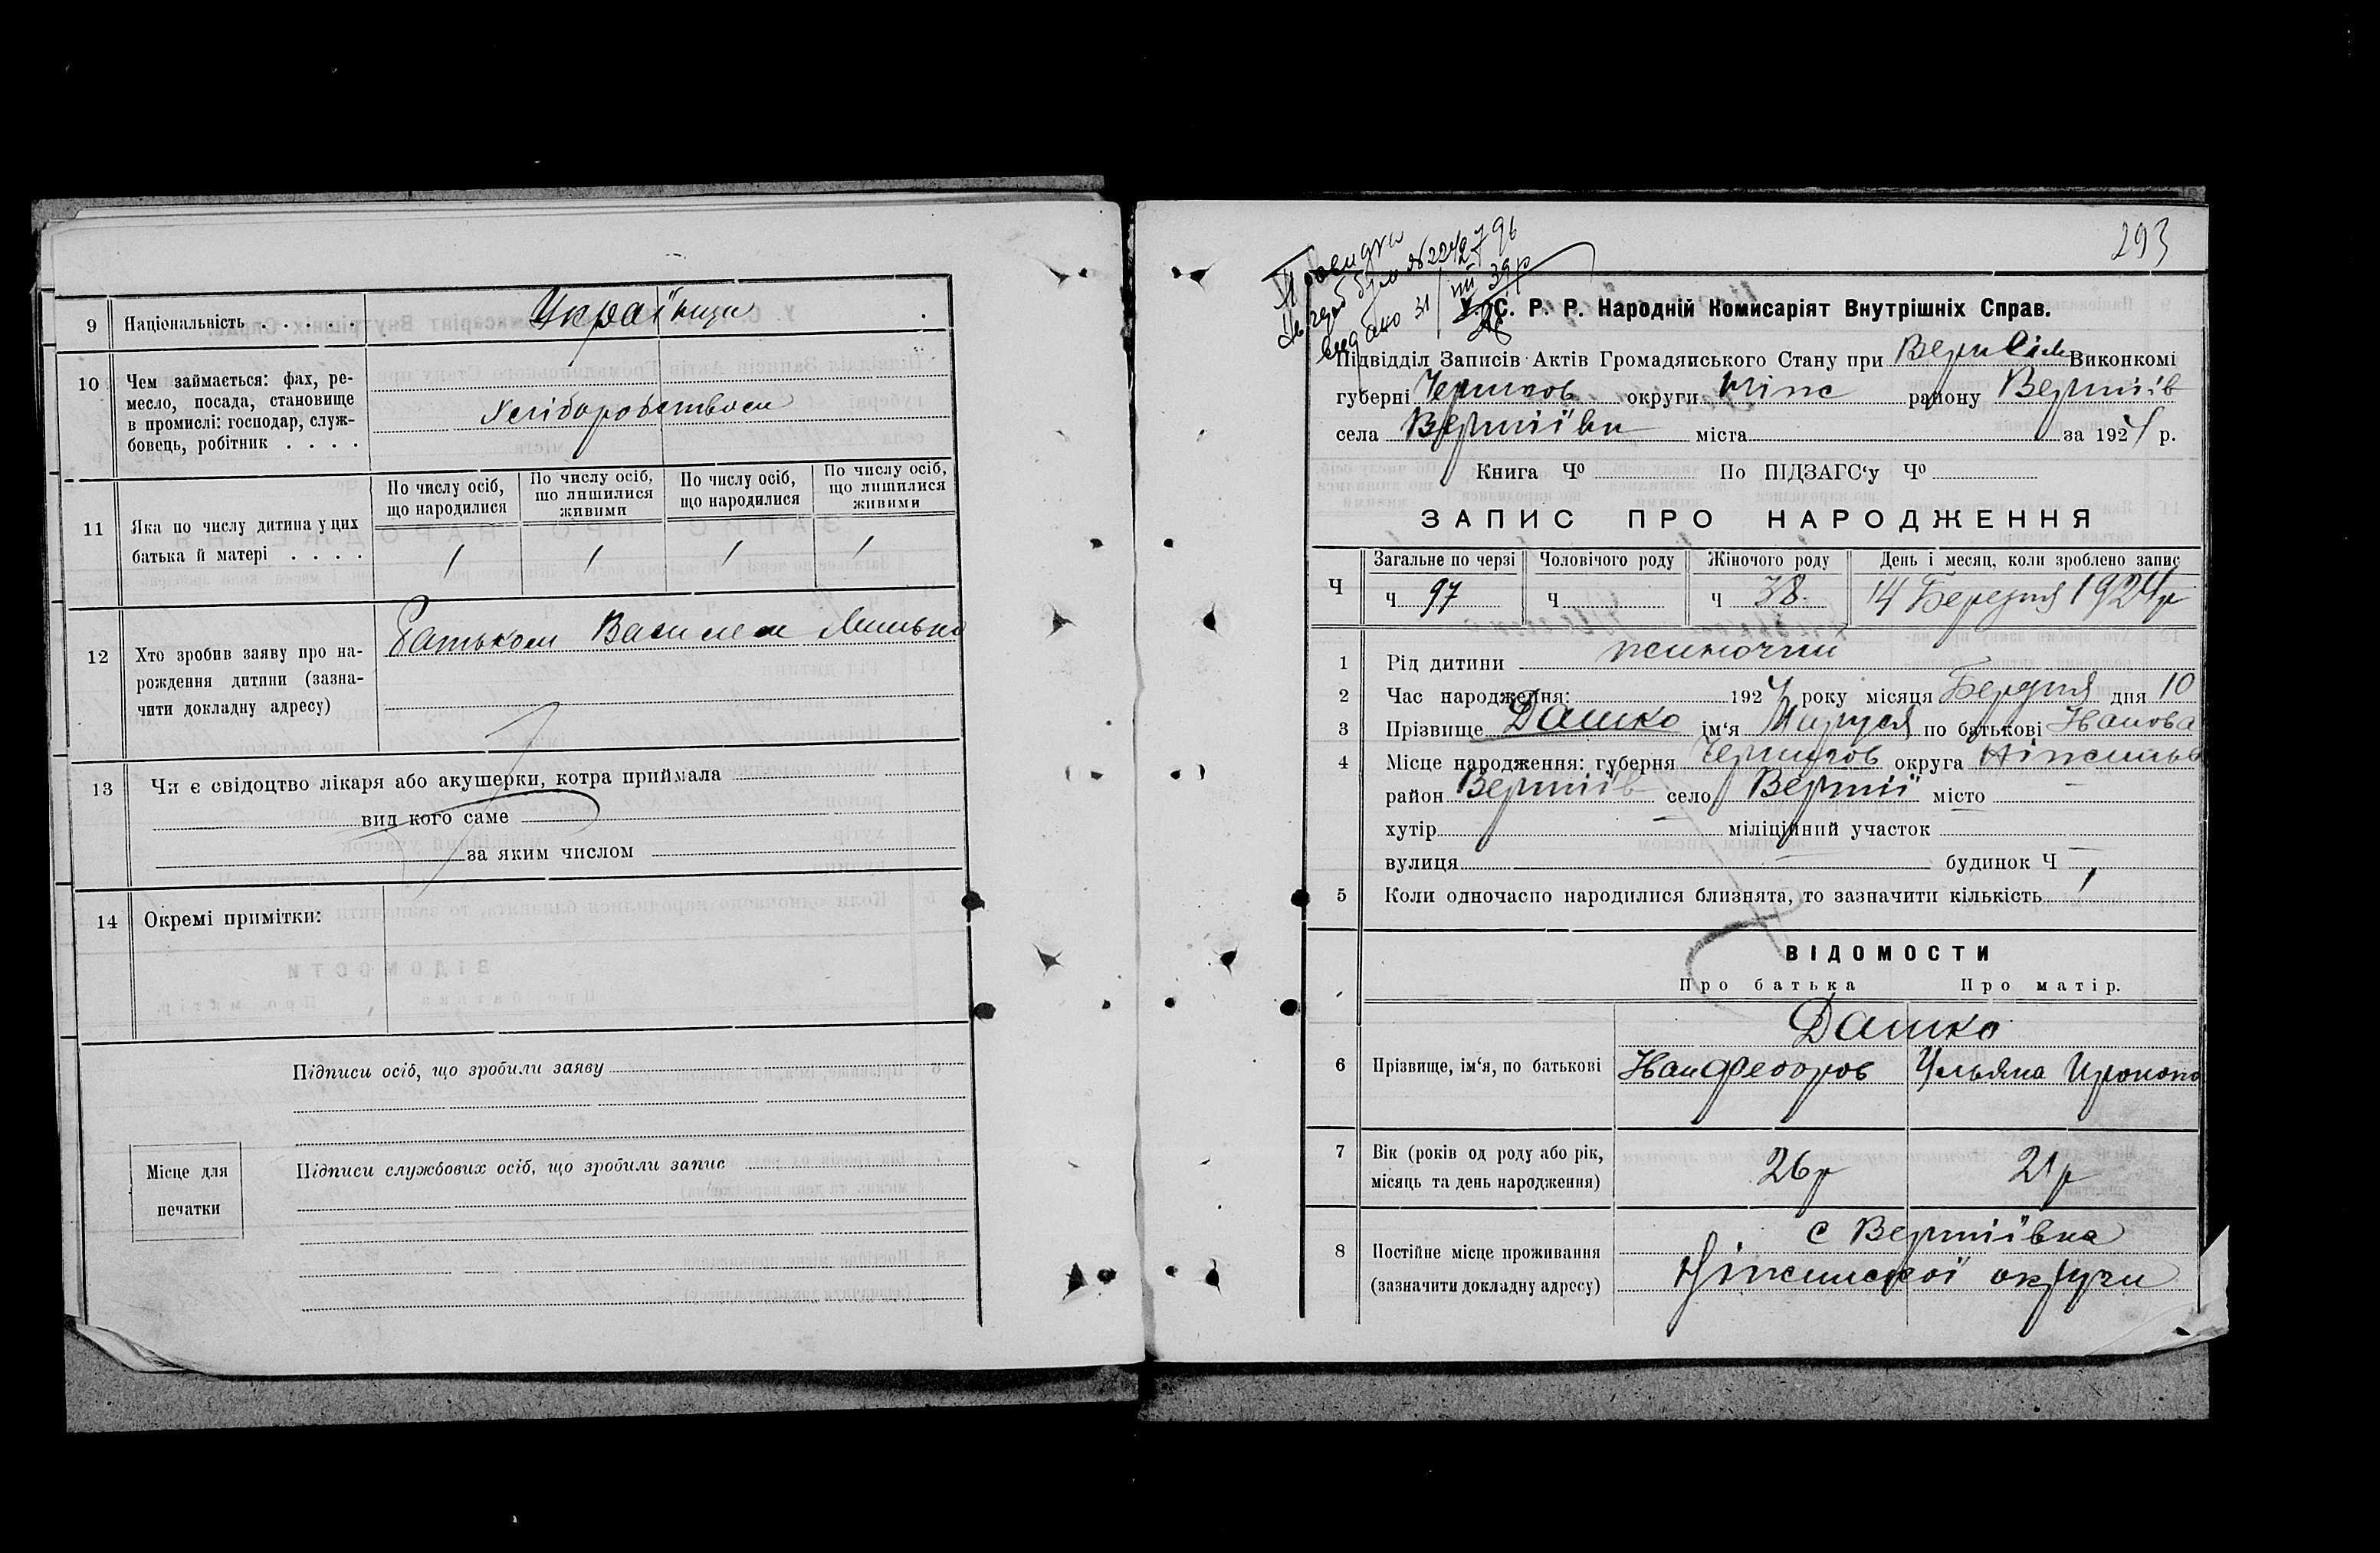 9 Національність . . . . . Українци
10 Чем займається: фах, ре-
месло, посада, становище
в промислі: господар, служ-
бовець, робітник . . . .
Хліборобством
11 Яка по числу дитина у цих
батька й матері . . . .
По числу осіб, що народилися
По числу осіб, що лишилися живими
По числу осіб, що народилися
По числу осіб, що лишилися живими
1 1 1 1
12 Хто зробив заяву про на-
рождення дитини (зазна-
чити докладну адресу)
Батьком Василем
13 Чи є свідоцтво лікаря або акушерки, котра приймала
вид кого саме
за яким числом
14 Окремі примітки:
Підписи осіб, що зробили заяву
Місце для
печатки
Підписи службових осіб, що зробили запис
293
У. С. Р. Р. Народній Комисаріят Внутрішніх Справ.
Підвідділ Записів Актів Громадянського Стану при Виконкомі
губерні Чернигов округи Ніж району Вертіїв
села Вертіївки міста за 1924 р.
Книга Чо По ПІДЗАГС‘у Чо
ЗАПИС ПРО НАРОДЖЕННЯ
Ч
Загальне по черзі Чоловічого роду Жіночого роду День і месяц, коли зроблено запис
Ч 97 Ч Ч 38 14 Березня 1924р
1 Рід дитини жиночий
2 Час народження: 1924 року місяця дня 10
3 Прізвище Дашко ім‘я Маруся по батькові Иванова
4 Місце народження: губерня Чернигов округа
район Вертіїв село Вертії місто
хутір міліційний участок
вулиця будинок Ч
5 Коли одночасно народилися близнята, то зазначити кількість 1
ВІДОМОСТИ
Про батька Про матір.
Дашко
6 Прізвище, ім‘я, по батькові Иван Федоров Ульяна
7 Вік (років од роду або рік,
місяць та день народження)
26р 21р
8 Постійне місце проживання
(зазначити докладну адресу)
с Вертіївка
Ніжинської округи